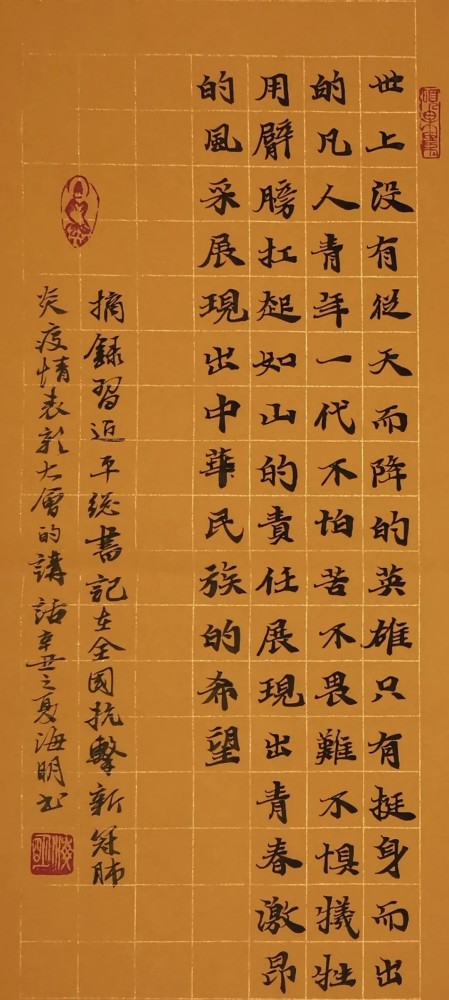 世上没有從天而降的英雄只有挺身而出
的凡人青年一代不怕苦不畏難不惧犠牲
用臂膀扛起如山的責任展現出青春激昂
的風采展現出中華民族的希望
摘録習近平総書記在全國抗擊新冠肺
炎疫情表彰大會的講話辛丑之夏海明书